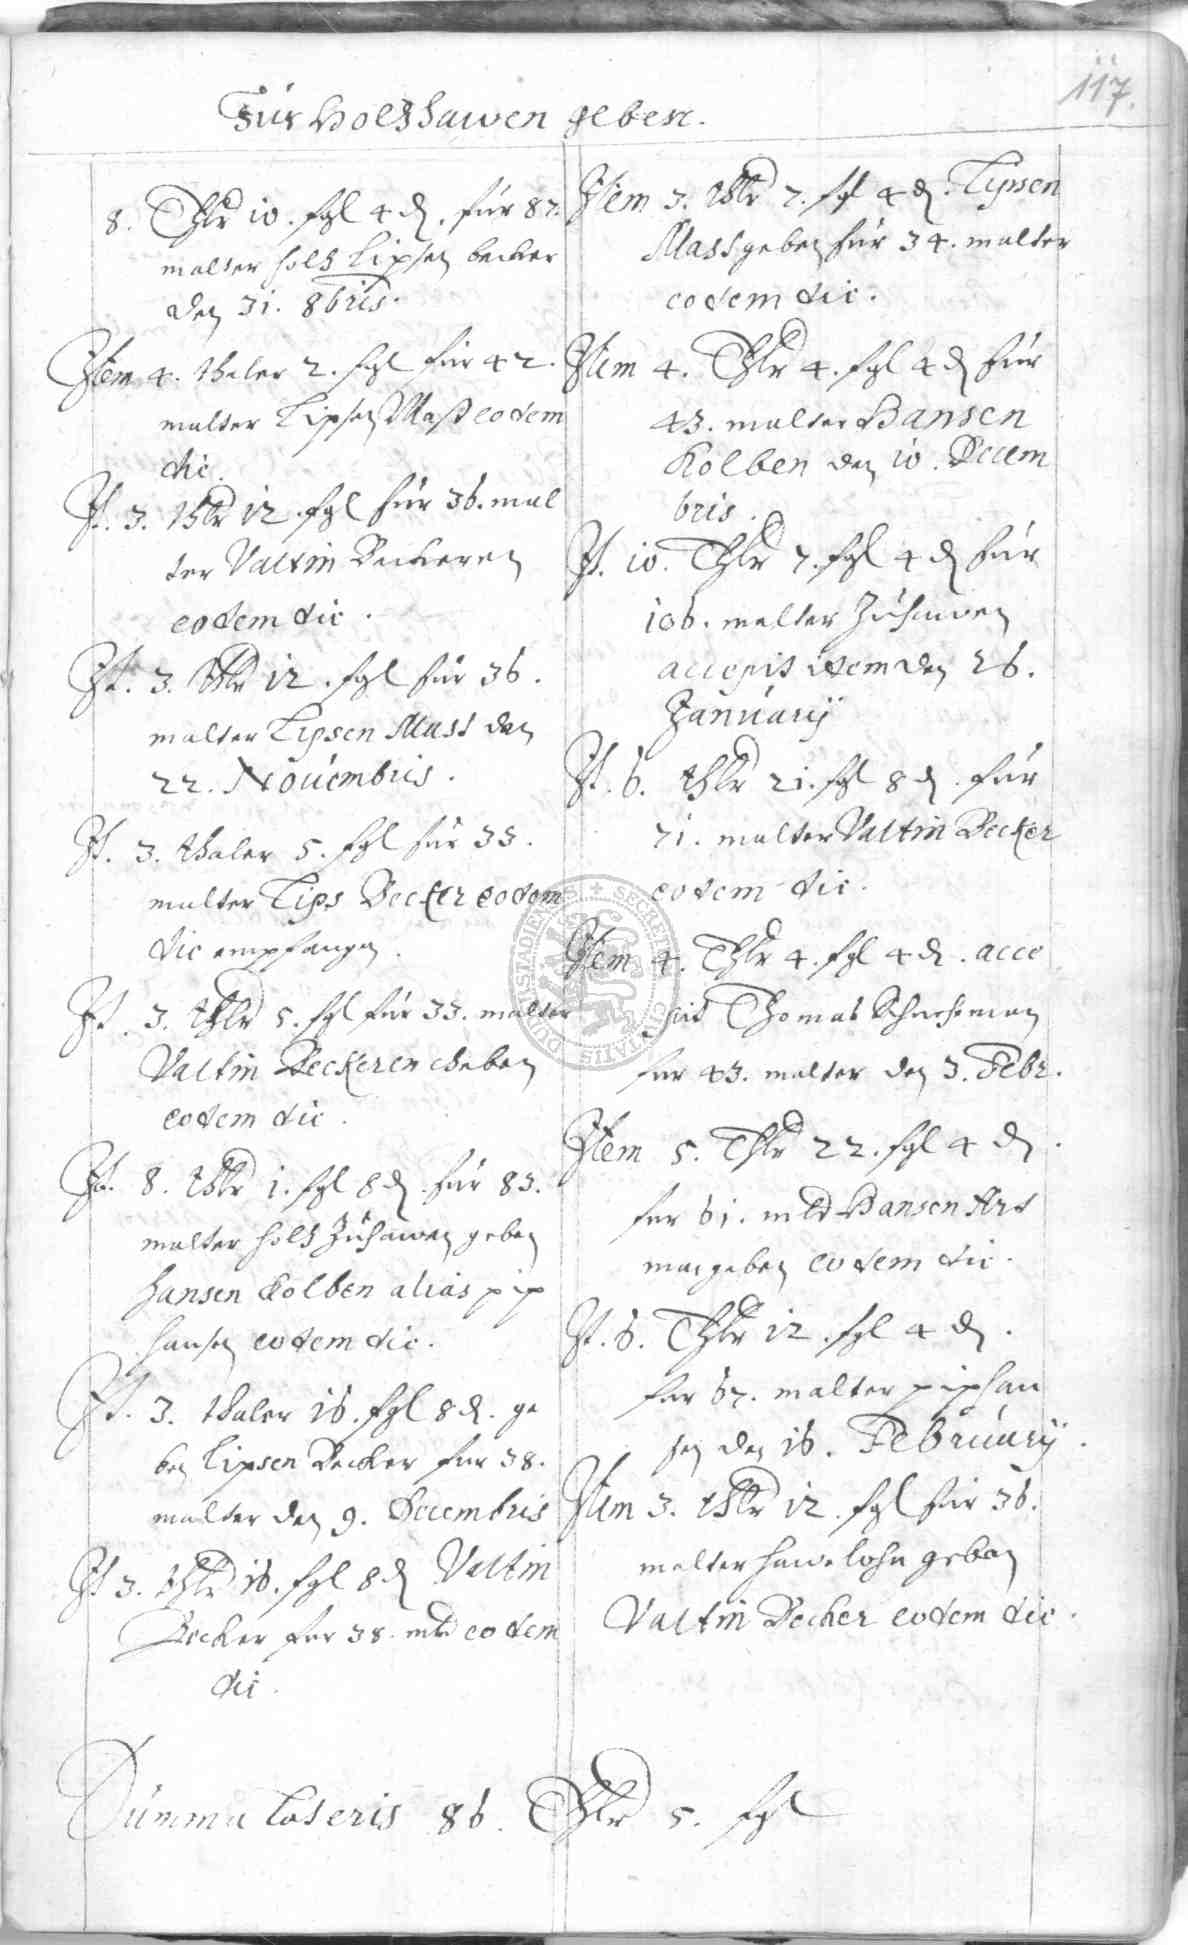 117.
Für Holtzhawen geben.
8. Thlr 10. fgl 4 ₰. für 87.
malter holtz Lipsen becker
den 31. 8bris.
Item 4. thaler 2. fgl für 42.
malter Lipsen Mass eodem
die.
It. 3. thlr 12. fgl für 36. mal
ter Valtin Beckeren
eodem die.
It. 3. thlr 12. fgl für 36.
malter Lipsen Mass den
22. Nouembris.
It. 3. thaler 5. fgl für 33.
malter Lips Becker eodem
die empfangen.
It. 3. thlr 5. fgl für 33. malter
Valtin Beckeren geben
eodem die.
It. 8. thlr 1. fgl 8 ₰. für 83.
malter holtz zuhawen geben
Hansen Kolben alias pip
hansen eodem die.
It. 3. thaler 16. fgl 8 ₰. ge
ben Lipsen Becker fur 38.
malter den 9. Decembris
It 3. thlr 16. fgl 8 ₰ Valtin
Becker fur 38. mld eodem
die.
Item 3. thlr 7. fgl 4 ₰. Lipsen
Mass geben für 34. malter
eodem die.
Item 4. Thlr 4. fgl 4 ₰ für
43. malter Hansen
Kolben den 10. Decem
bris.
It. 10. Thlr 7. fgl 4 ₰ für
106. malter zuhawen
accepit idem den 26.
January
It. 6. thlr 21. fgl 8 ₰. für
71. malter Valtin Becker
eodem die.
Item 4. Thlr 4. fgl 4 ₰. acce
pit Thomas
fur 43. malter den 3. Febr.
Item 5. Thlr 22. fgl 4 ₰.
fur 61. mld Hansen
geben eodem die.
It. 6. Thlr 12. fgl 4 ₰.
fur 67. malter piphan
sen den 16. February.
Item 3. thlr 12. fgl für 36.
malter hawe lohn geben
Valtin Becker eodem die.
Summa Lateris 86. Thlr 5. fgl